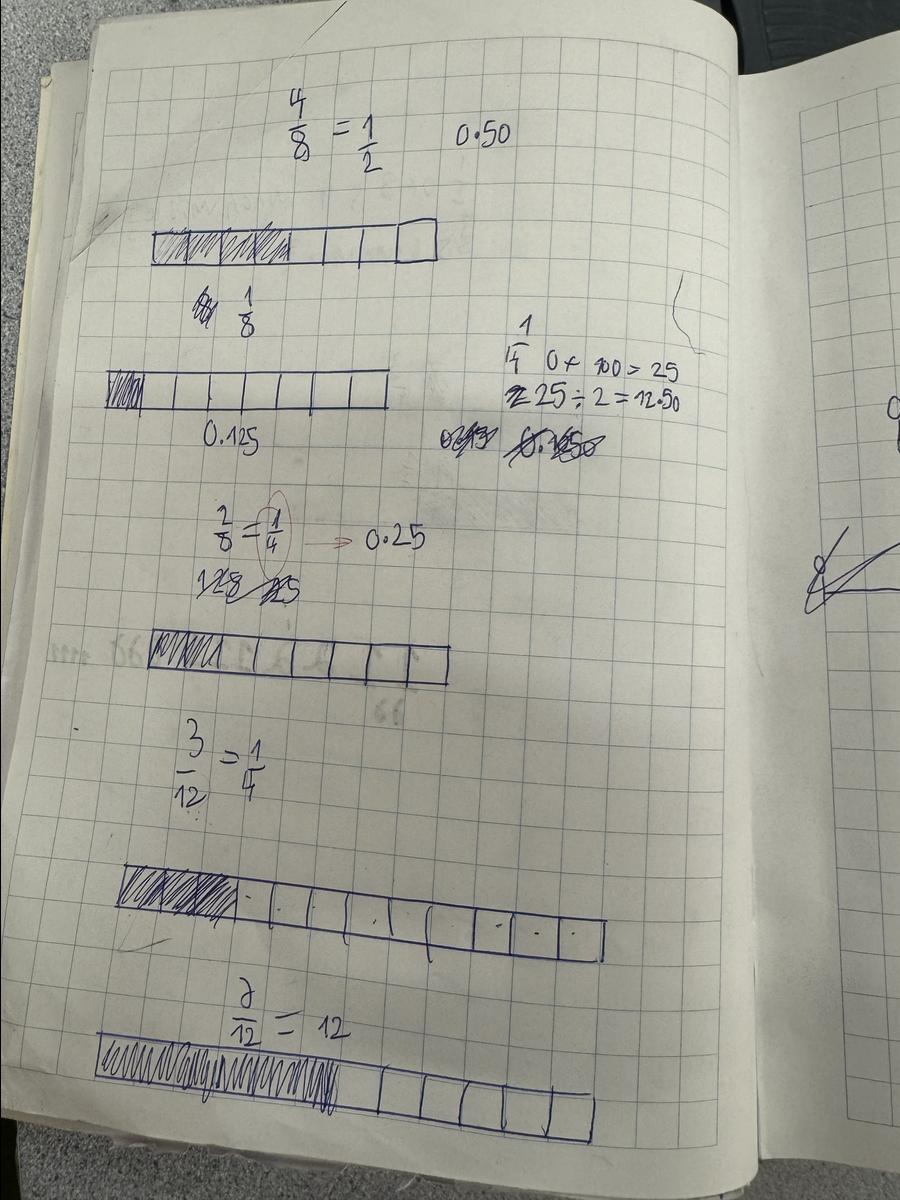 4/8 = 1/2 0.50
1/8
1/4 0+ 100 = 25
25 ÷ 2 = 12.50
0.125
2/8 = 1/4 → 0.25
3/12 = 1/4
/12 = 12